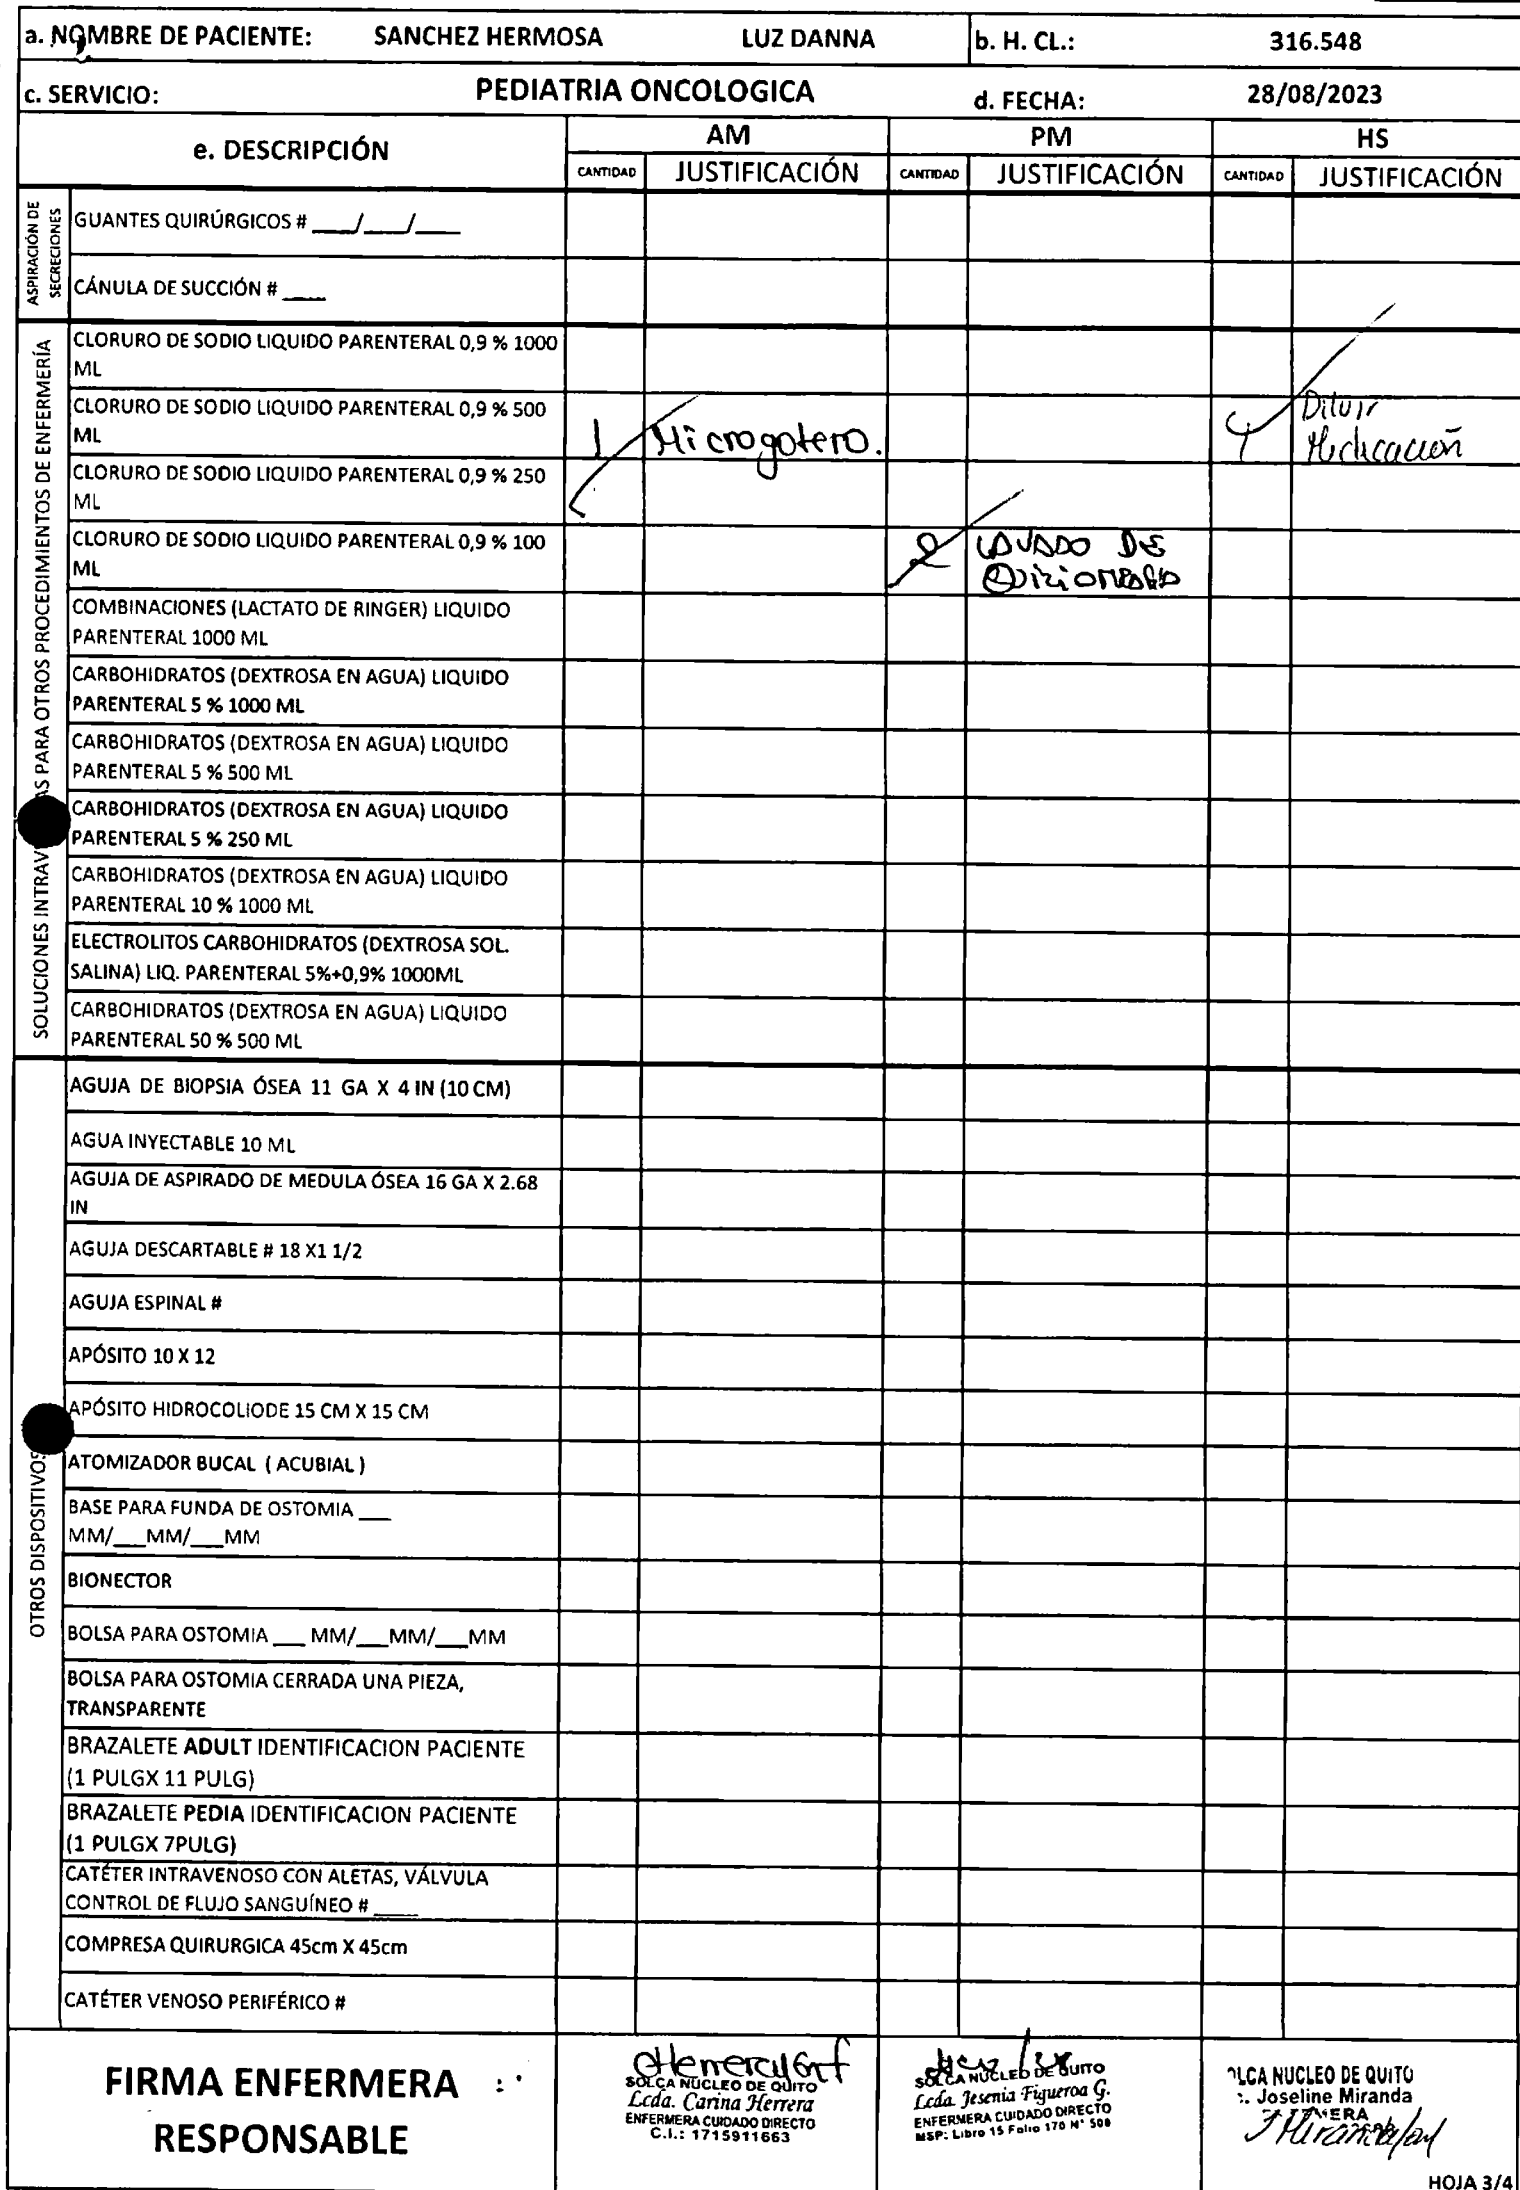 a. NOMBRE DE PACIENTE: SANCHEZ HERMOSA LUZ DANNA b. H. CL.: 316.548
c. SERVICIO: PEDIATRIA ONCOLOGICA d. FECHA: 28/08/2023
e. DESCRIPCIÓN AM PM HS
CANTIDAD JUSTIFICACIÓN CANTIDAD JUSTIFICACIÓN CANTIDAD JUSTIFICACIÓN
ASPIRACIÓN DE
SECRECIONES
GUANTES QUIRÚRGICOS # ___/___/___
CÁNULA DE SUCCIÓN # ___
SOLUCIONES INTRAV AS PARA OTROS PROCEDIMIENTOS DE ENFERMERÍA
CLORURO DE SODIO LIQUIDO PARENTERAL 0,9 % 1000
ML
CLORURO DE SODIO LIQUIDO PARENTERAL 0,9 % 500
ML
1 Microgotero.
Diluir
Medicación
CLORURO DE SODIO LIQUIDO PARENTERAL 0,9 % 250
ML
CLORURO DE SODIO LIQUIDO PARENTERAL 0,9 % 100
ML
2 LAVADO DE
COMBINACIONES (LACTATO DE RINGER) LIQUIDO
PARENTERAL 1000 ML
CARBOHIDRATOS (DEXTROSA EN AGUA) LIQUIDO
PARENTERAL 5 % 1000 ML
CARBOHIDRATOS (DEXTROSA EN AGUA) LIQUIDO
PARENTERAL 5 % 500 ML
CARBOHIDRATOS (DEXTROSA EN AGUA) LIQUIDO
PARENTERAL 5 % 250 ML
CARBOHIDRATOS (DEXTROSA EN AGUA) LIQUIDO
PARENTERAL 10 % 1000 ML
ELECTROLITOS CARBOHIDRATOS (DEXTROSA SOL.
SALINA) LIQ. PARENTERAL 5%+0,9% 1000ML
CARBOHIDRATOS (DEXTROSA EN AGUA) LIQUIDO
PARENTERAL 50 % 500 ML
OTROS DISPOSITIVOS
AGUJA DE BIOPSIA ÓSEA 11 GA X 4 IN (10 CM)
AGUA INYECTABLE 10 ML
AGUJA DE ASPIRADO DE MEDULA ÓSEA 16 GA X 2.68
IN
AGUJA DESCARTABLE # 18 X1 1/2
AGUJA ESPINAL #
APÓSITO 10 X 12
APÓSITO HIDROCOLIODE 15 CM X 15 CM
ATOMIZADOR BUCAL ( ACUBIAL )
BASE PARA FUNDA DE OSTOMIA ___
MM/___MM/___MM
BIONECTOR
BOLSA PARA OSTOMIA ___ MM/___MM/___MM
BOLSA PARA OSTOMIA CERRADA UNA PIEZA,
TRANSPARENTE
BRAZALETE ADULT IDENTIFICACION PACIENTE
(1 PULGX 11 PULG)
BRAZALETE PEDIA IDENTIFICACION PACIENTE
(1 PULGX 7PULG)
CATÉTER INTRAVENOSO CON ALETAS, VÁLVULA
CONTROL DE FLUJO SANGUÍNEO # ____
COMPRESA QUIRURGICA 45cm X 45cm
CATÉTER VENOSO PERIFÉRICO #
FIRMA ENFERMERA
RESPONSABLE
SOLCA NUCLEO DE QUITO
Lcda. Carina Herrera
ENFERMERA CUIDADO DIRECTO
C.I.: 1715911663
SOLCA NUCLEO DE QUITO
Lcda. Jesenia Figueroa G.
ENFERMERA CUIDADO DIRECTO
MSP: Libro 15 Folio 170 N° 508
LCA NUCLEO DE QUITO
Joseline Miranda
HOJA 3/4